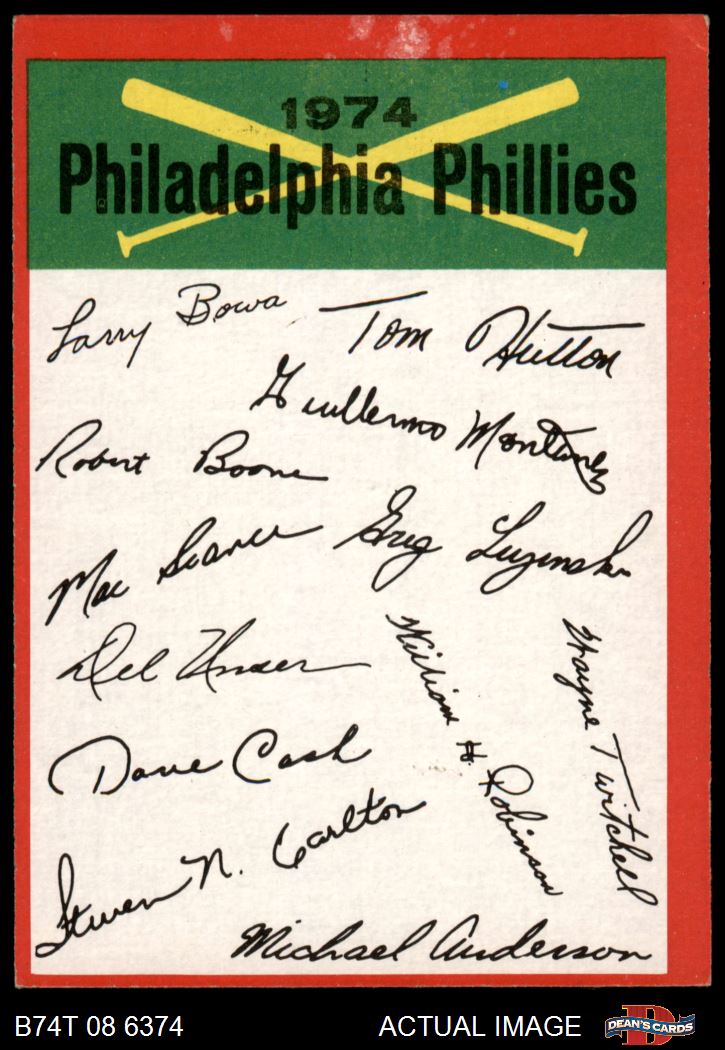 1974
Philadelphia Phillies
Larry Bowa
Tom Hutton
Guillermo Montanez
Robert Boone
Mac Scarce
Greg Luzinski
Del Unser
William H. Robinson
Wayne Twitchell
Dave Cash
Steven N. Carlton
Michael Anderson
B74T 08 6374
ACTUAL IMAGE
D
DEAN'S CARDS